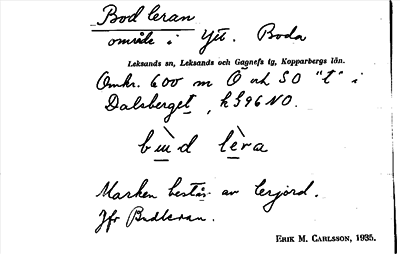 Bodleran
område i Ytt. Boda
Leksands sn, Leksands och Gagnefs tg, Kopparbergs län.
Omkr. 600 m Ö och SO "t" i
Dalsberget, k 396 NO.
lèra
Marken består av lerjord.
Jfr Budleran.
ERIK M. CARLSSON, 1935.